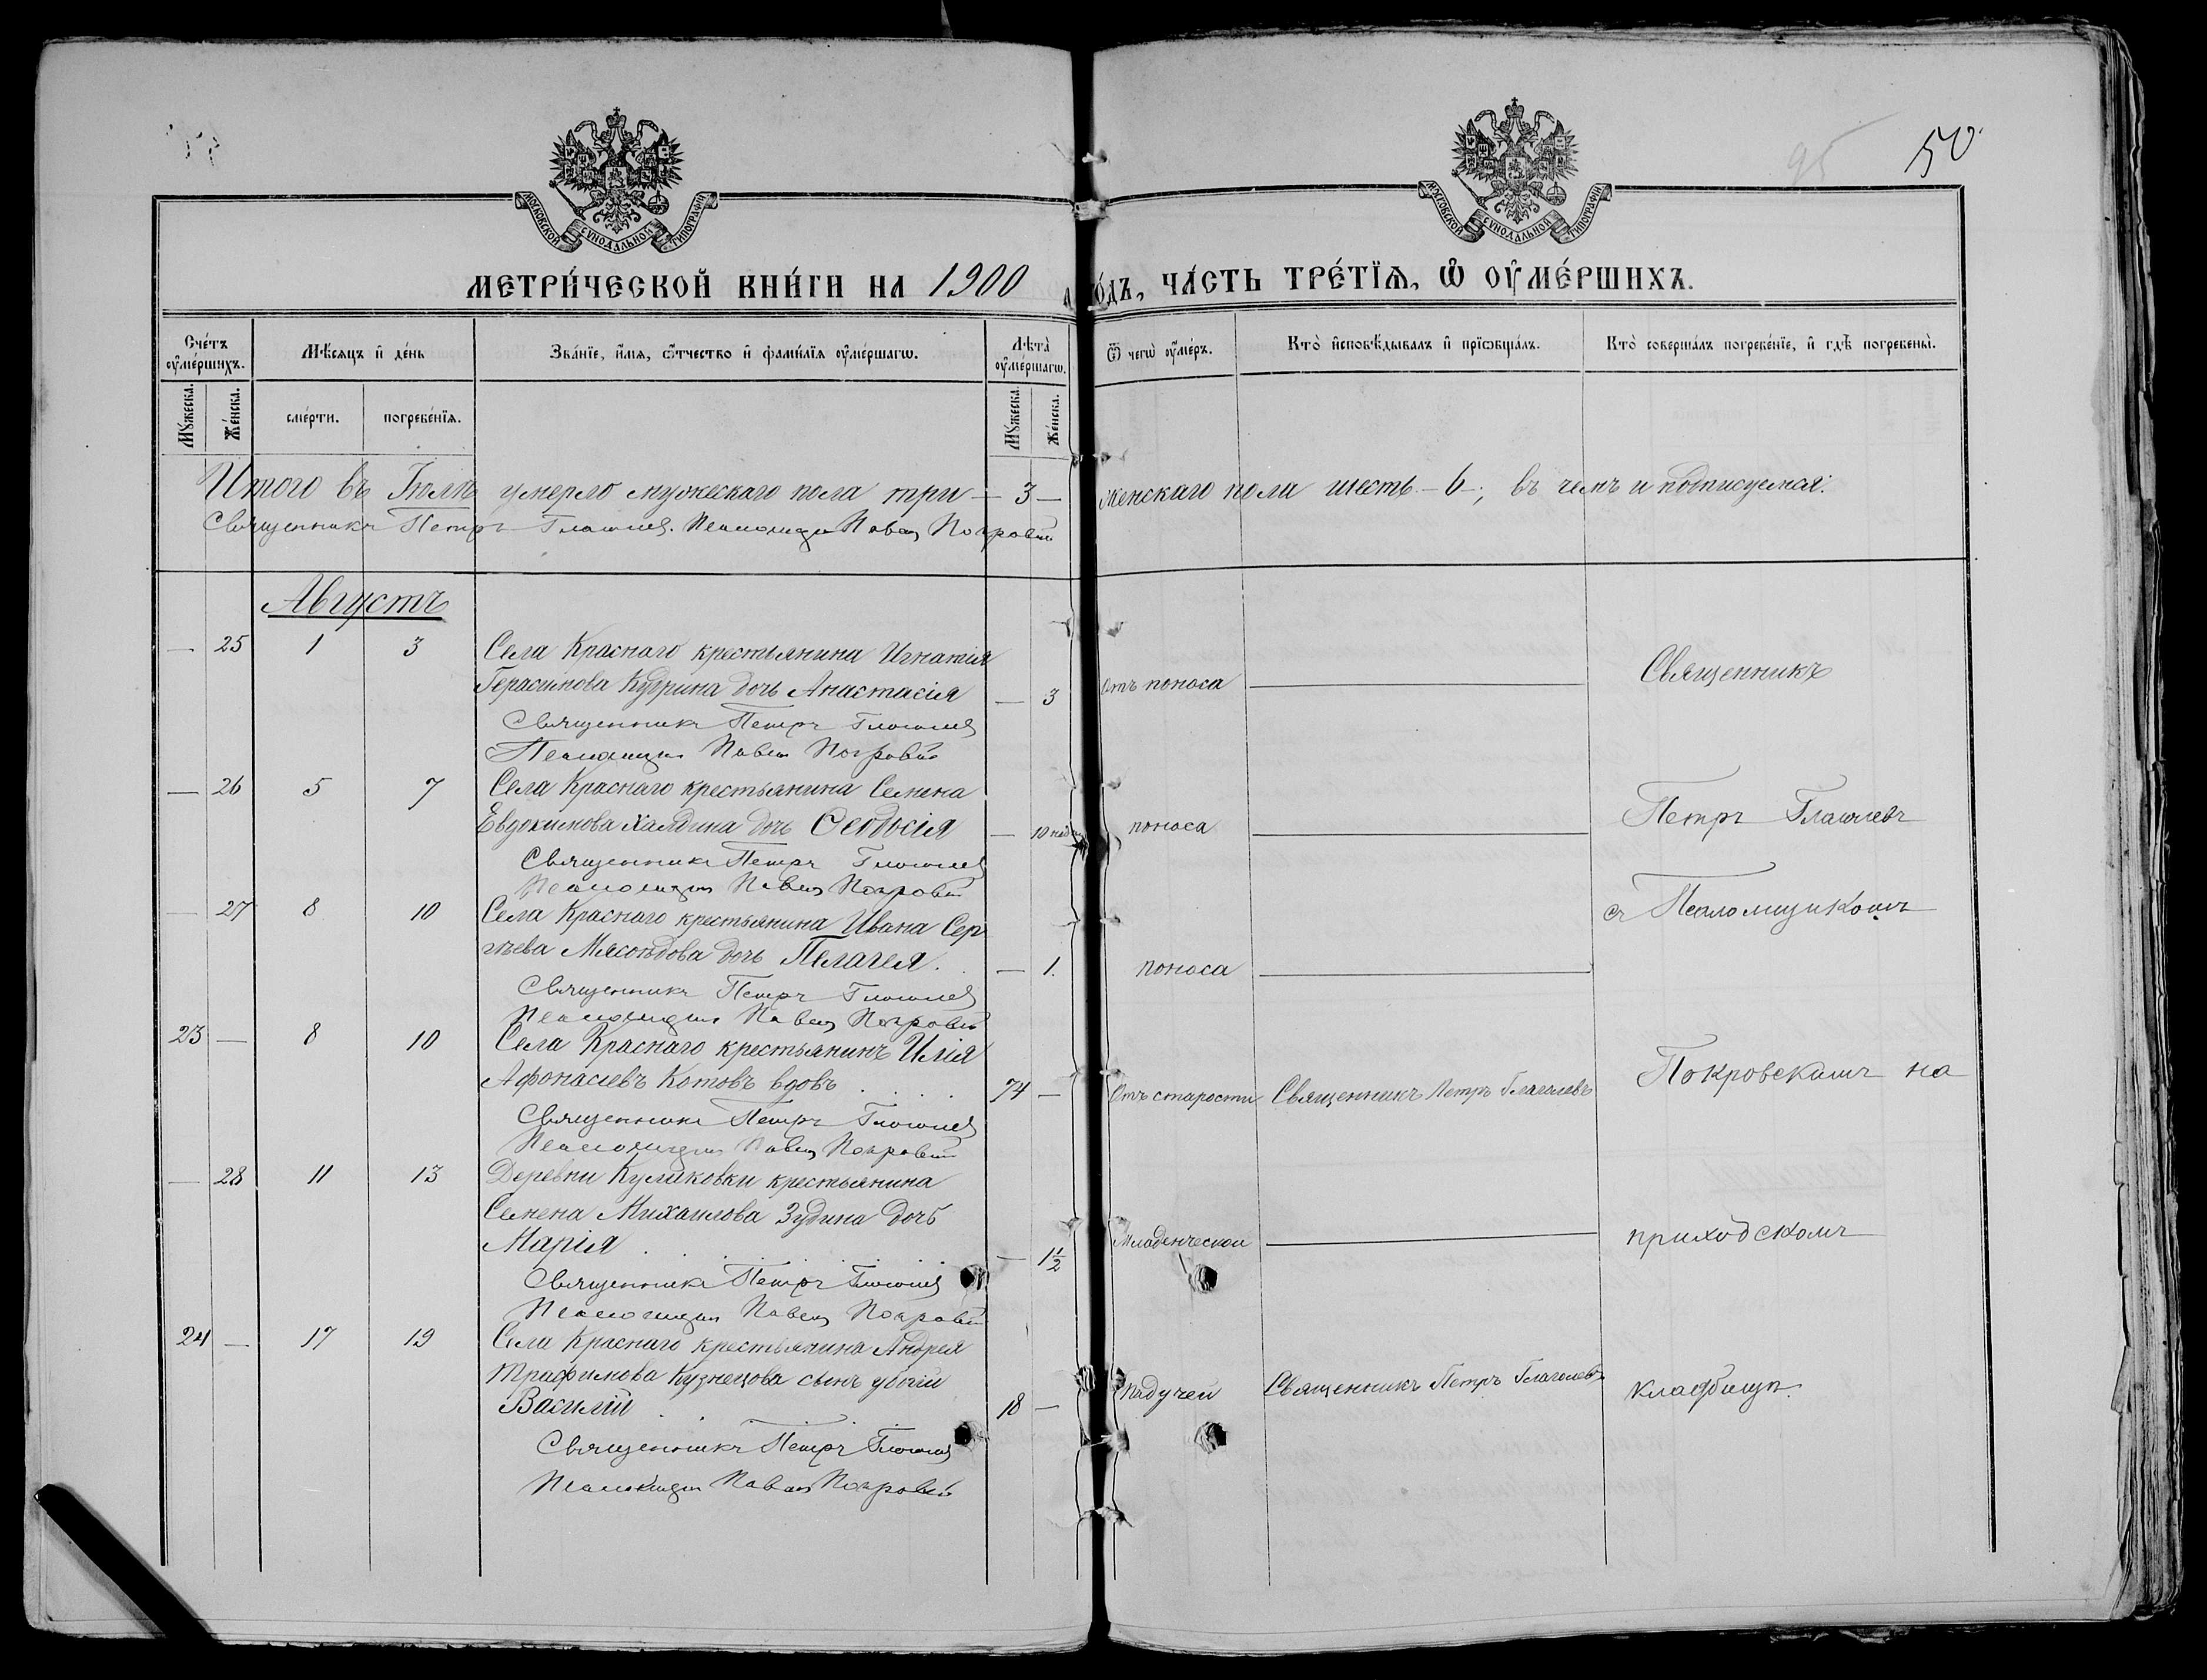 95
50
МОСКОВСКОЙ СѴНОДАЛЬНОЙ ТИПОГРАФІИ
МОСКОВСКОЙ СѴНОДАЛЬНОЙ ТИПОГРАФІИ
МЕТРИ́ЧЕСКОЙ КНИ́ГИ НА 1900 ГО́ДЪ, ЧА́СТЬ ТРЕ́ТЇѦ, Ѡ҆ ОУ҆МЕ́РШИХЪ.
Сче́тъ оу҆ме́ршихъ.
Мѣ́сяцъ и҆ де́нь
Зва́нїе, и҆́мѧ, ѻ҆́тчество и҆ фами́лїѧ оу҆ме́ршагѡ.
Лѣ́та оу҆ме́ршагѡ.
Ѿ чегѡ̀ оу҆́меръ.
Кто̀ и҆сповѣ́дывалъ и҆ прїѡбща́лъ.
Кто̀ соверша́лъ погребе́нїе, и҆ гдѣ̀ погребены̀.
Мꙋ́жеска. Же́нска. сме́рти. погребе́нїѧ. Мꙋ́жеска. Же́нска.
Итого въ Іюлѣ умерло мужескаго пола три — 3 — женскаго пола шесть - 6 -; въ чемъ и подписуемся:
Священникъ Петръ Глаголевъ. Псаломщикъ Павелъ Покровскій
Августъ
— 25 1 3 Села Краснаго крестьянина Игнатія
Герасимова Кудрина дочь Анастасія — 3 Отъ поноса Священникъ
Священникъ Петръ Глаголевъ
Псаломщикъ Павелъ Покровскій
— 26 5 7 Села Краснаго крестьянина Семена
Евдокимова Халдина дочь Ѳеодосія — 10 недѣ поноса Петръ Глаголевъ
Священникъ Петръ Глаголевъ
Псаломщикъ Павелъ Покровскій
— 27 8 10 Села Краснаго крестьянина Ивана Сер съ Псаломщикомъ
гѣева Мясоѣдова дочь Пелагея. — 1. поноса
Священникъ Петръ Глаголевъ
Псаломщикъ Павелъ Покровскій
23 — 8 10 Села Краснаго крестьянинъ Илія
Афонасіевъ Котовъ вдовъ 74 — Отъ старости Священникъ Петръ Глаголевъ Покровскимъ на
Священникъ Петръ Глаголевъ
Псаломщикъ Павелъ Покровскій
— 28 11 13 Деревни Куликовки крестьянина
Семена Михаилова Зудина дочь
Марія — 1½ Младенческой приходскомъ
Священникъ Петръ Глаголевъ
Псаломщикъ Павелъ Покровскій
24 — 17 19 Села Краснаго крестьянина Андрея
Трафимова Кузнецова сынъ убогій
Василій 18 — Падучей Священникъ Петръ Глаголевъ кладбищѣ.
Священникъ Петръ Глаголевъ
Псаломщикъ Павелъ Покровскій